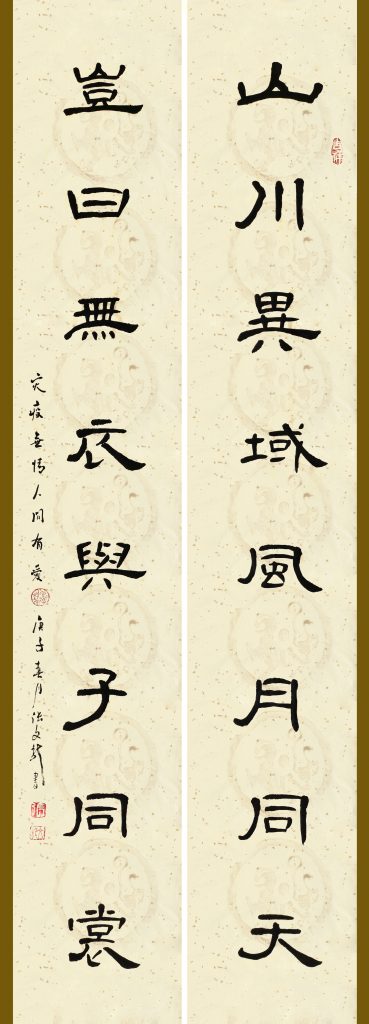 山川異域風月同天
豈曰無衣與子同裳
灾疫無情人間有愛
庚子春月